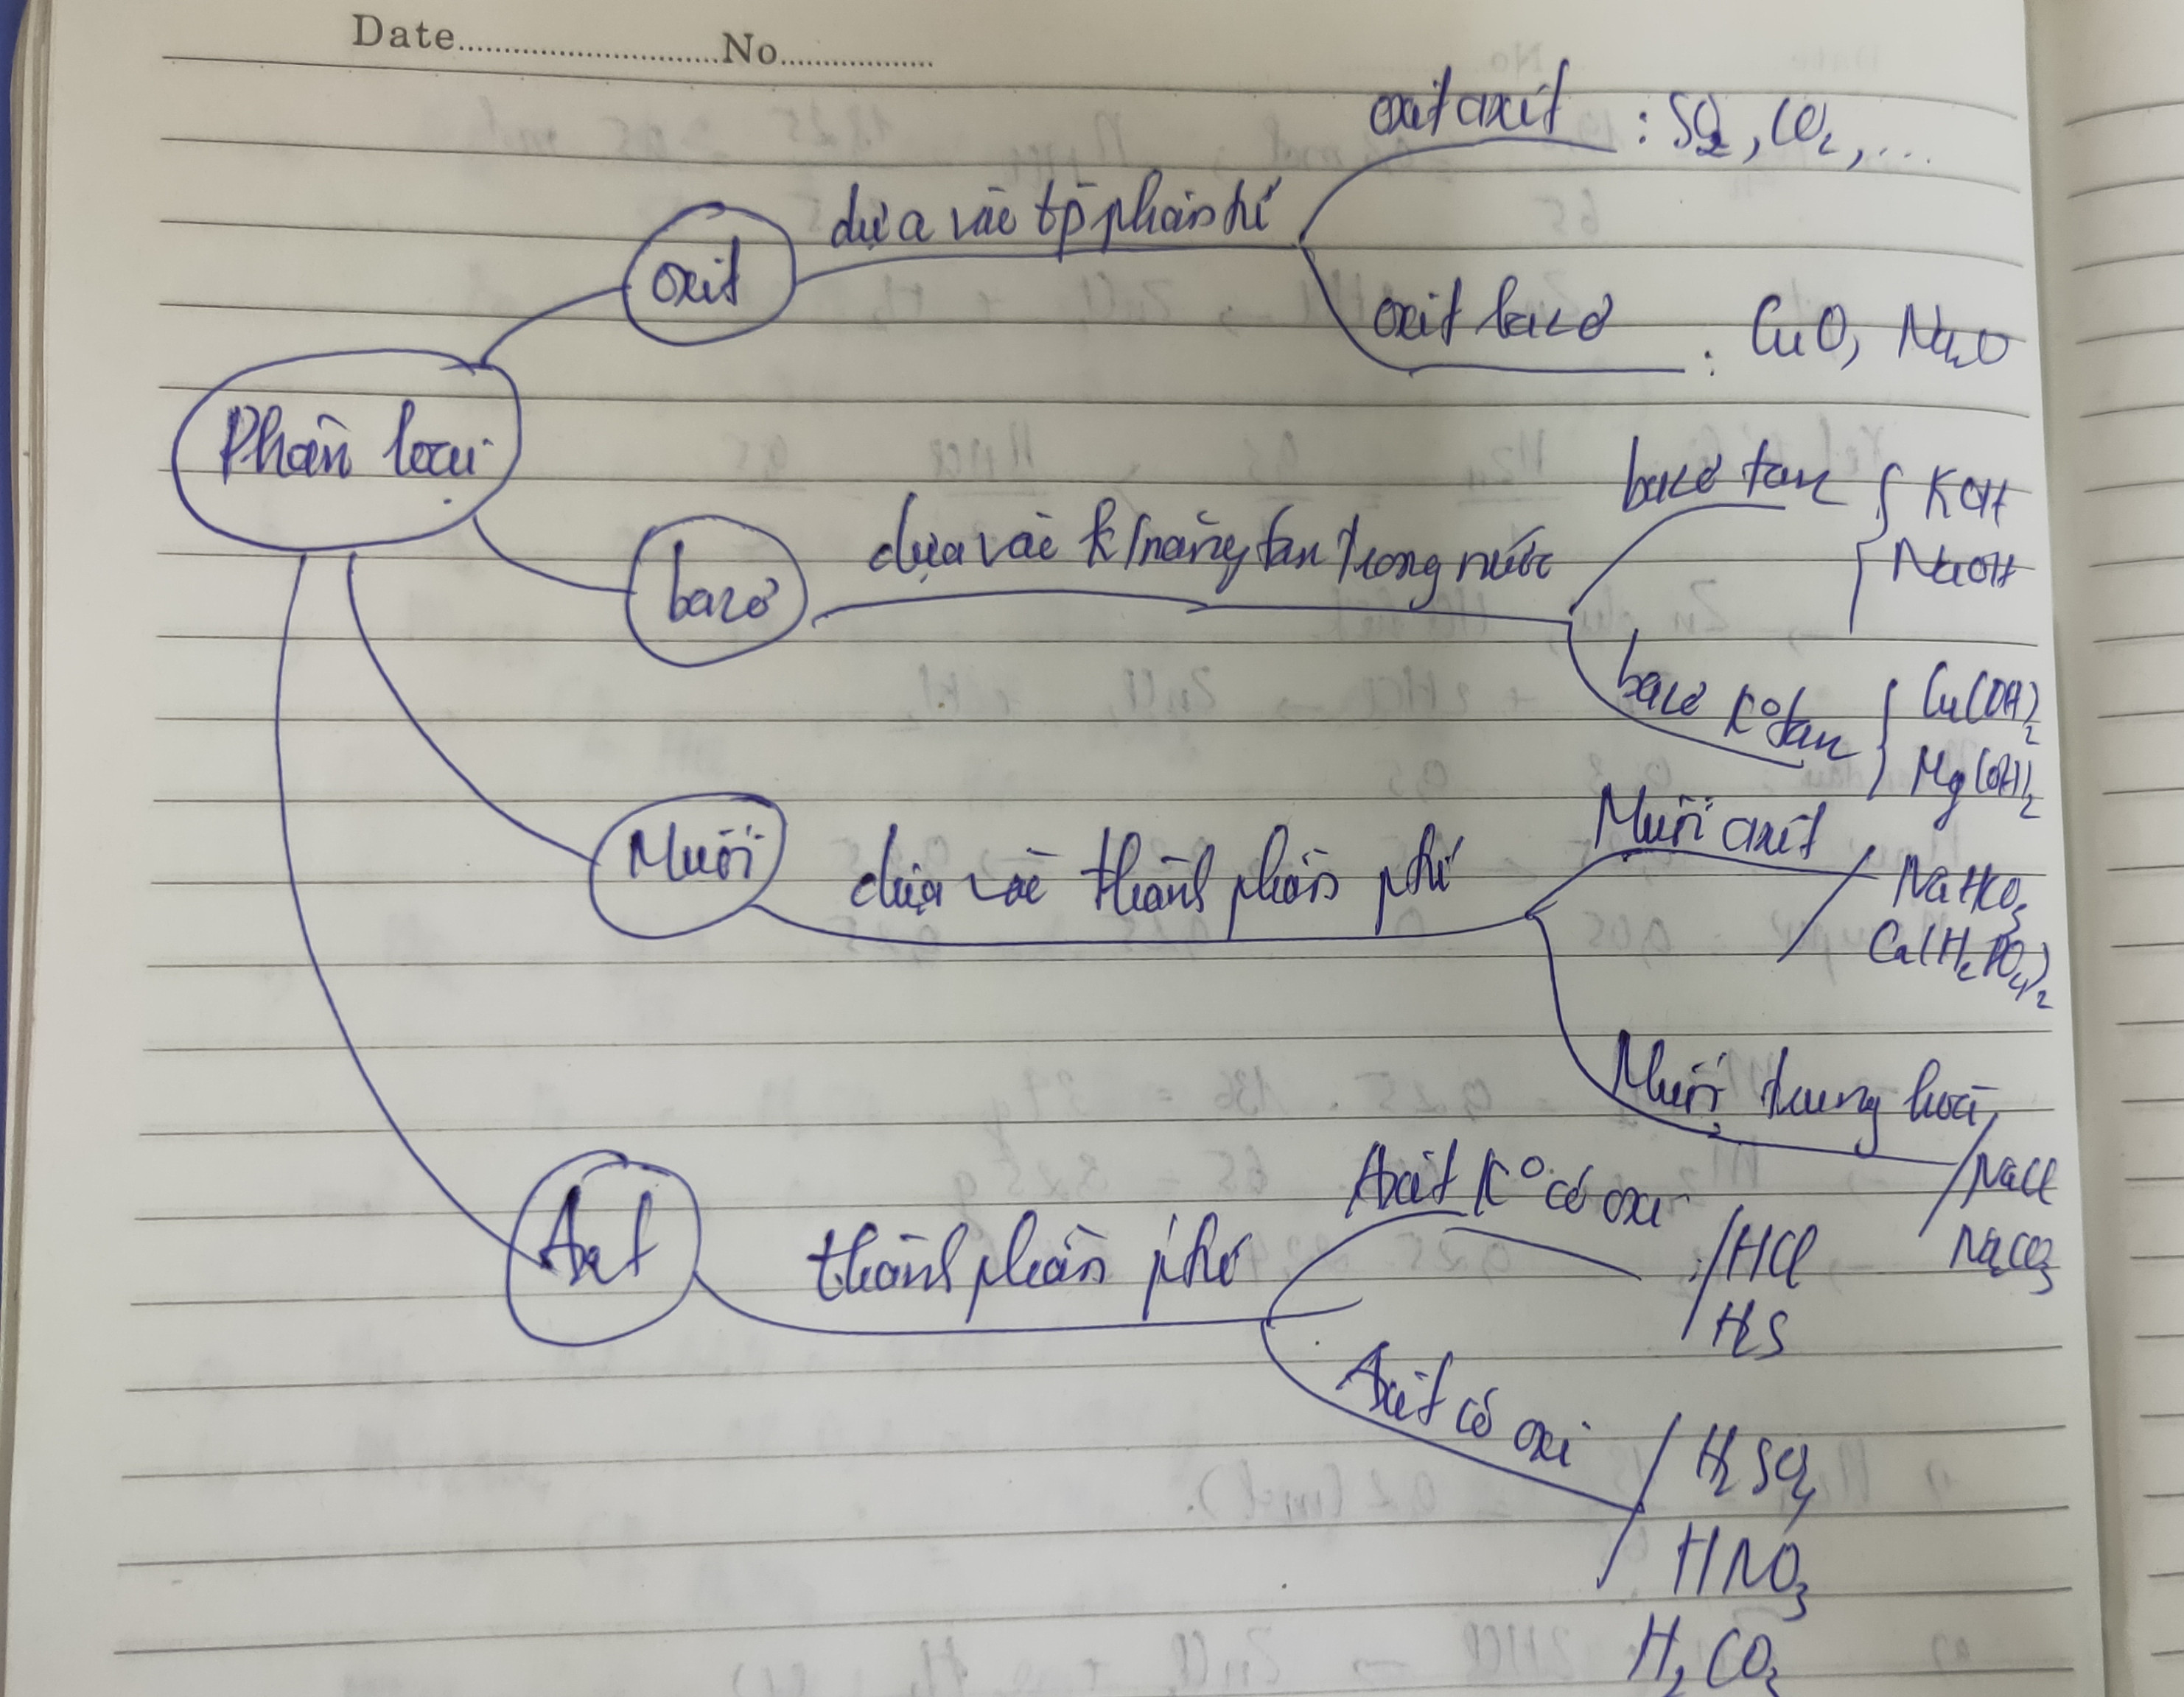 Date............No............
Phân loại
oxit
dựa vào tp phân tử
oxit axit : SO2, CO2, ...
oxit bazơ : CuO, Na2O
bazơ
dựa vào k/năng tan trong nước
bazơ tan { KOH
NaOH
bazơ ko tan { Cu(OH)2
Mg(OH)2
Muối
dựa vào thành phần ptử
Muối axit / NaHCO3
Ca(H2PO4)2
Muối trung hoà / NaCl
Na2CO3
Axit
thành phần ptử
Axit ko có oxi : / HCl
H2S
Axit có oxi / H2SO4
HNO3
H2CO3